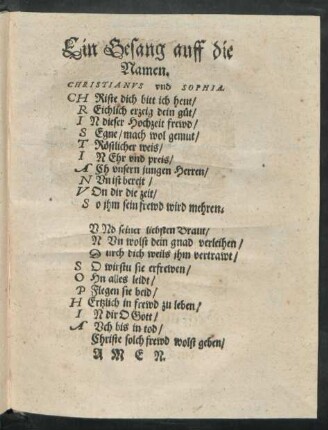 Ein Gesang auff die
Namen.
CHRISTIANVS vnd SOPHIA.
CH Riste dich bitt ich heut/
R Eichlich erzeig dein güt/
I N dieser Hochzeit frewd/
S Egne/mach wol gemut/
T Röstlicher weis/
I N Ehr vnd preis/
A Ch vnsern jungen Herren/
N Vn ist bereit/
V On dir die zeit/
S o ihm sein frewd wird mehren.
V Nd seiner liebsten Braut/
N Vn wolst dein gnad verleihen/
D urch dich weils ihm vertrawt/
S O wirstu sie erfrewen/
O Hn alles leidt/
P Flegen sie beid/
H Ertzlich in frewd zu leben/
I N dir O Gott/
A Vch bis in tod/
Christe solch frewd wolst geben/
A M E N.